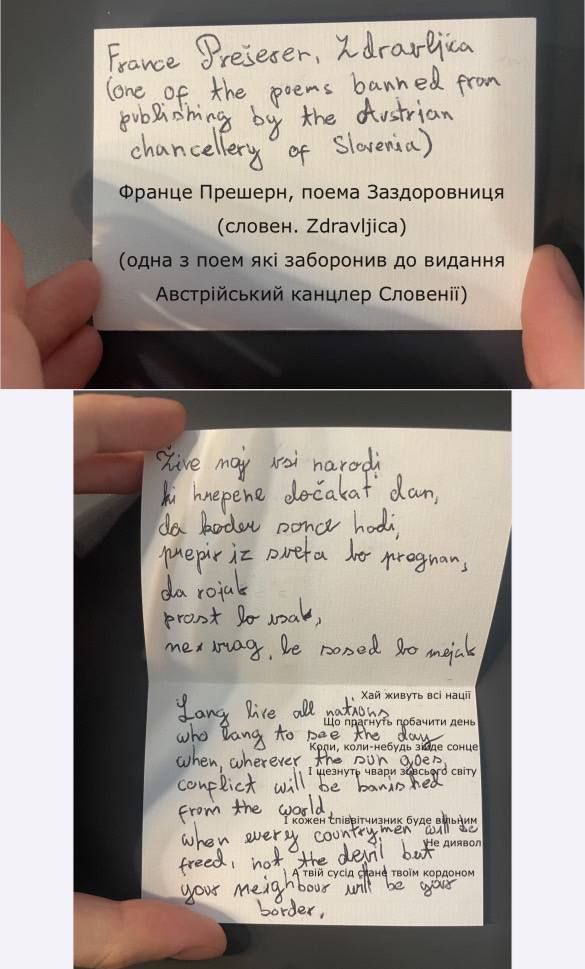 France Prešeren, Zdravljica
(one of the poems banned from
publishing by the Austrian
chancellery of Slovenia)
Франце Прешерн, поема Заздоровниця
(словен. Zdravljica)
(одна з поем які заборонив до видання
Австрійський канцлер Словенії)
Žive naj vsi narodi
ki hrepene dočakat dan,
da koder sonce hodi,
prepir iz sveta bo pregnan,
da rojak
prost bo vsak,
ne vrag, le sosed bo mejak
Хай живуть всі нації
Long live all nations
Що прагнуть побачити день
who long to see the day
Коли, коли-небудь зійде сонце
when, wherever the sun goes,
І щезнуть чвари зі всього світу
conflict will be banished
from the world,
І кожен співвітчизник буде вільним
when every countrymen will be
Не диявол
freed, not the devil but
А твій сусід стане твоїм кордоном
your neighbour will be your
border.